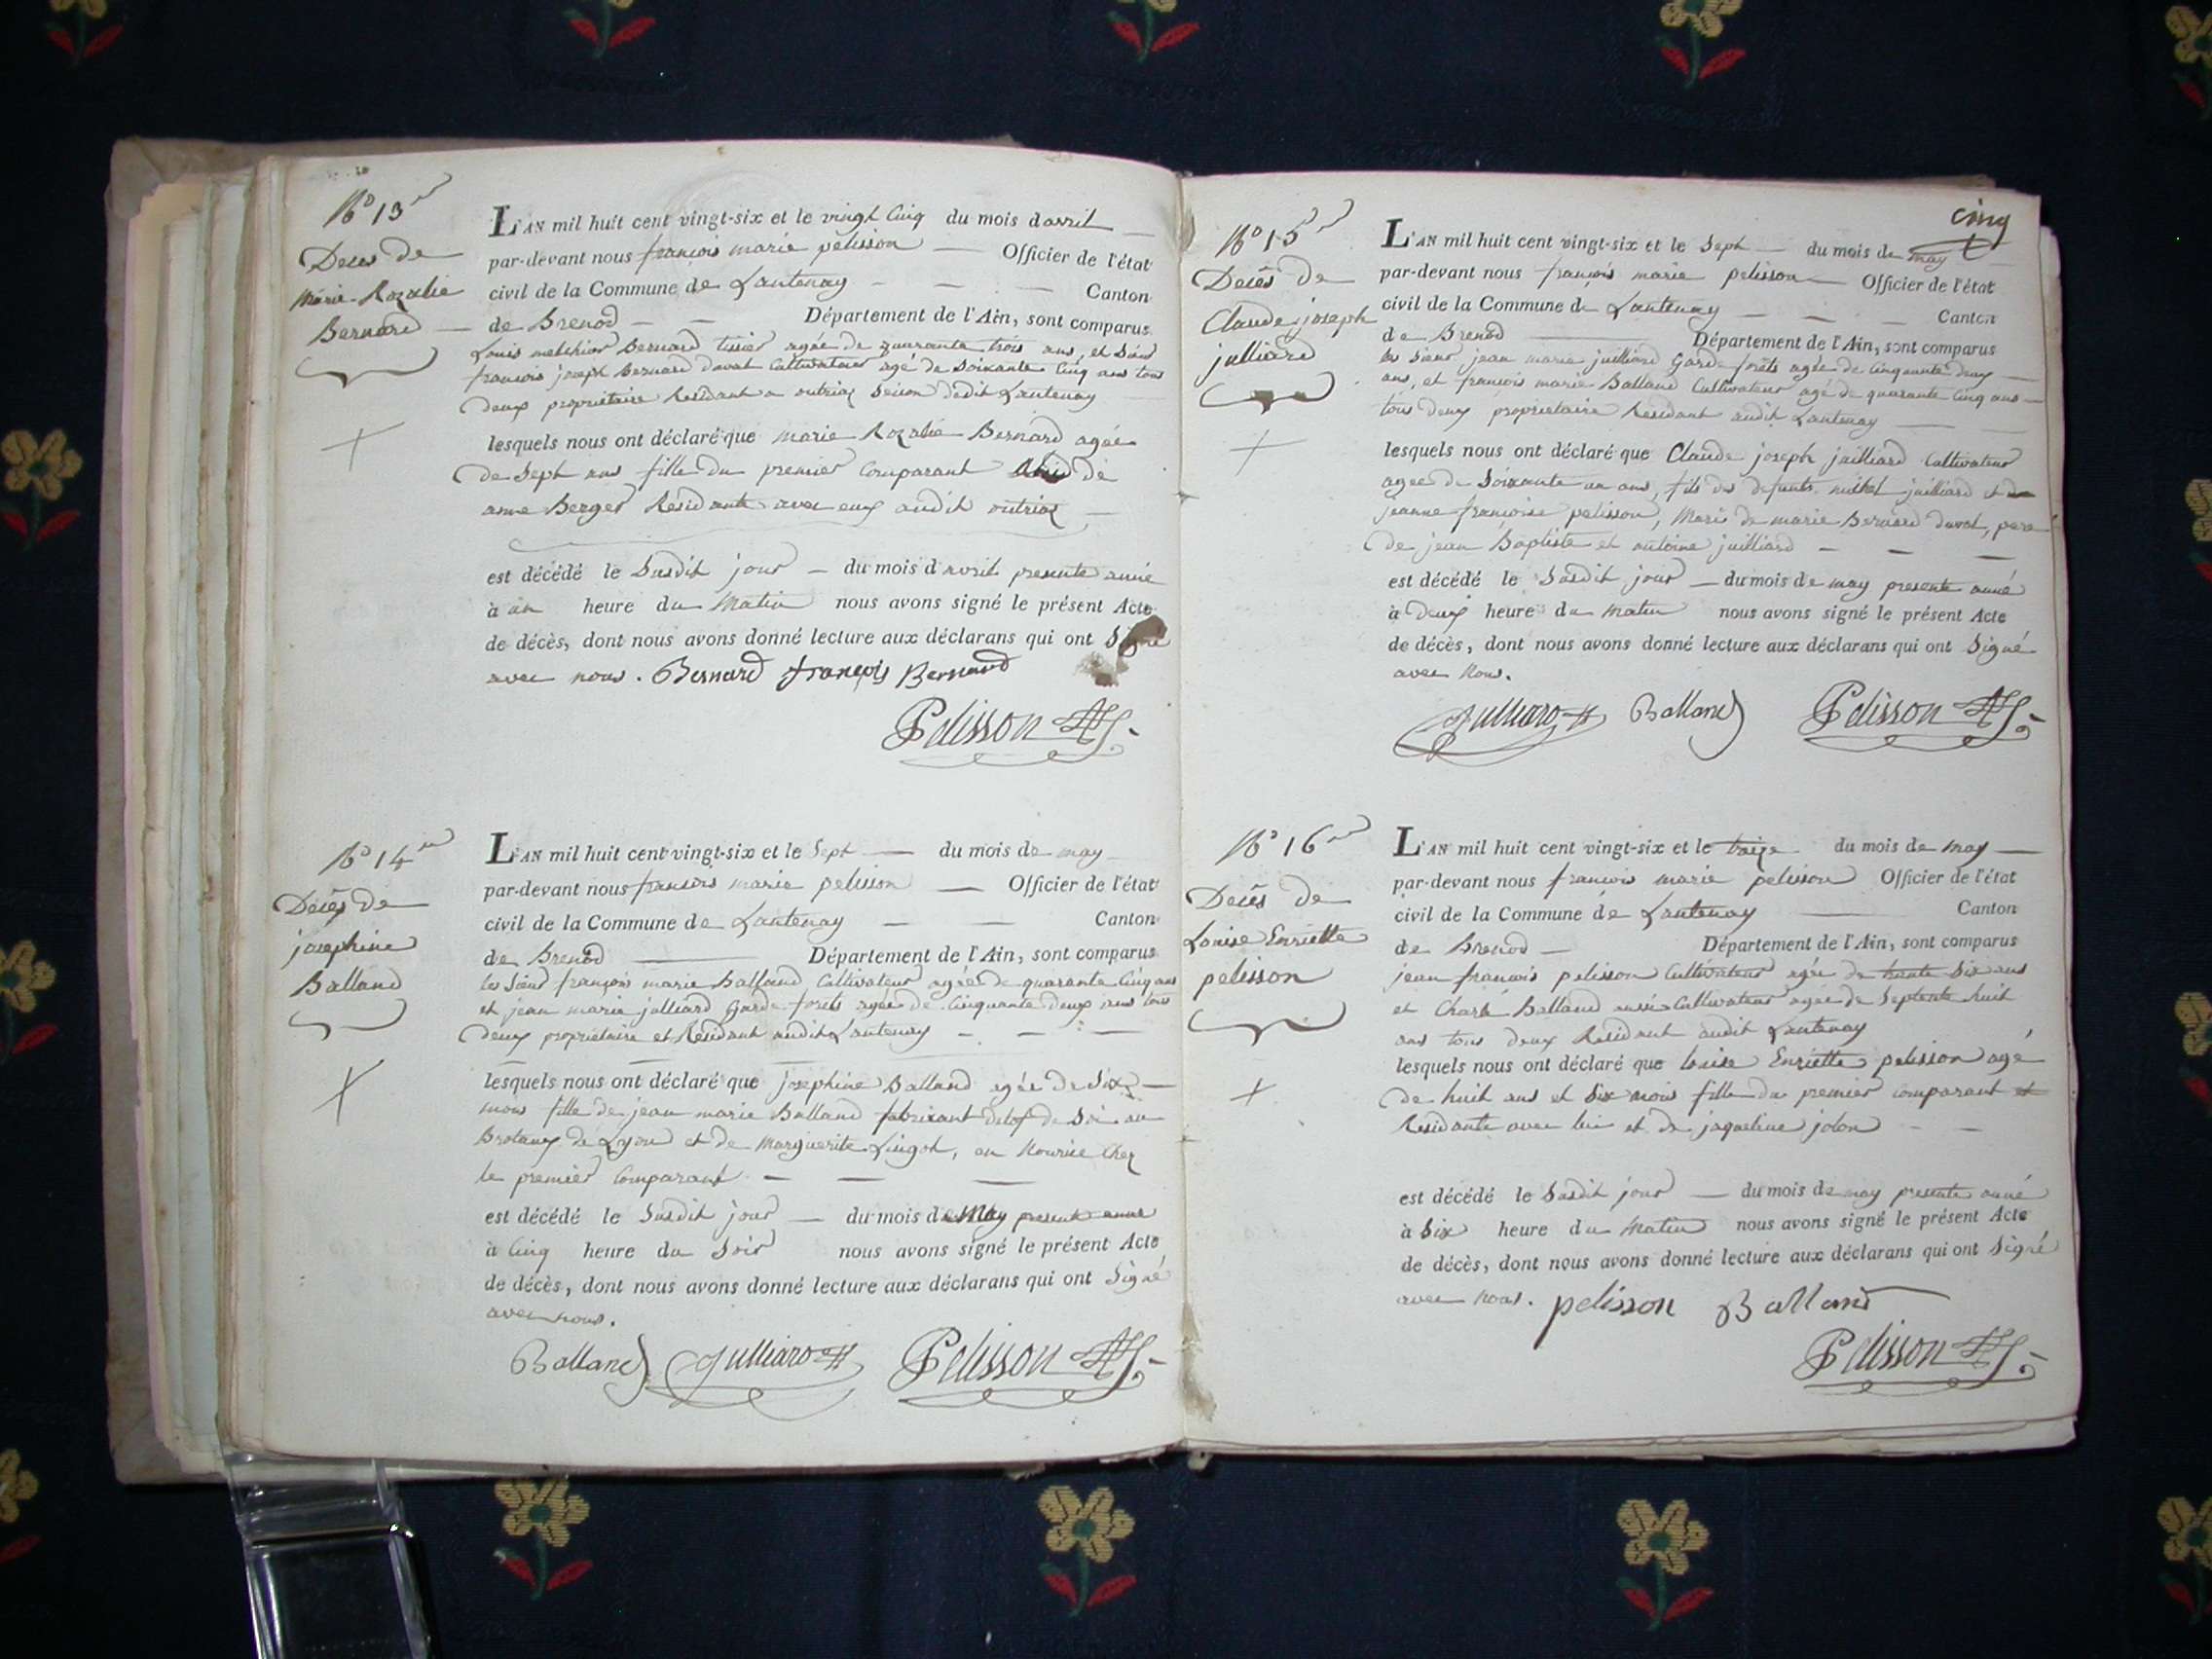 No 13
Deces de
Marie-Rozalie
Bernard
L'AN mil huit cent vingt-six et le vingt Cinq du mois d avril
par-devant nous françois marie pelisson Officier de l'état
civil de la Commune de Lantenay Canton
de Brenod Département de l'Ain, sont comparus
Louis melchior Bernard tissier agée de quarante trois ans, et Sieur
françois joseph Bernard Duvat Cultivateur agé de Soixante Cinq ans tous
deux proprietaire Residant a outriaz dudit Lantenay
lesquels nous ont déclaré que marie Rozalie Bernard agée
de Sept ans fille du premier Comparant de
anne Berger Residante avec eux audit outriaz
est décédé le Susdit jour du mois d avril presente année
à un heure du Matin nous avons signé le présent Acte
de décès, dont nous avons donné lecture aux déclarans qui ont Signé
avec nous. Bernard françois Bernard
Pelisson
No 14
Décès de
josephine
Balland
L'AN mil huit cent vingt-six et le Sept du mois de may
par-devant nous francois marie pelisson Officier de l'état
civil de la Commune de Lantenay Canton
de Brenod Département de l'Ain, sont comparus
les Sieur françois marie Balland Cultivateur agée de quarante Cinq ans
et jean marie julliard Garde forets agée de Cinquante deux ans tous
deux proprietaire et Residant audit Lantenay
lesquels nous ont déclaré que josephine Balland agée de Six
mois fille de jean marie Balland fabricant au
Brotaux de Lyon et de Marguerite Lingot, en Nourice Chez
le premier Comparant
est décédé le Susdit jour du mois de May presente anné
à Cinq heure du Soir nous avons signé le présent Acte
de décès, dont nous avons donné lecture aux déclarans qui ont Signé
avec nous.
Balland Julliard Pelisson
cinq
No 15
Decés de
Claude joseph
julliard
L'AN mil huit cent vingt-six et le Sept du mois de may
par-devant nous françois marie pelisson Officier de l'état
civil de la Commune de Lantenay Canton
de Brenod Département de l'Ain, sont comparus
les Sieur jean marie juilliard Garde forêts agée de Cinquante deux
ans, et francois marie Balland Cultivateur agé de quarante Cinq ans
tous deux proprietaire Residant audit Lantenay
lesquels nous ont déclaré que Claude joseph juilliard Cultivateur
agée de Soixante un ans, fils des defunts juilliard et de
jeanne françoise pelisson, Mari de marie Bernard Duvat, pere
de jean Baptiste et antoine juilliard
est décédé le Susdit jour du mois de may presente anné
à Deux heure du matin nous avons signé le présent Acte
de décès, dont nous avons donné lecture aux déclarans qui ont Signé
avec Nous.
Julliard Balland Pelisson
No 16
Decés de
Louise Enriette
pelisson
L'AN mil huit cent vingt-six et le traize du mois de may
par-devant nous francois marie pelisson Officier de l'état
civil de la Commune de Lantenay Canton
de Brenod Département de l'Ain, sont comparus
jean françois pelisson Cultivateur agée de trante Six ans
et Charle Balland aussi Cultivateur agée de Septente huit
ans tous deux Residant audit Lantenay
lesquels nous ont déclaré que louise Enriette pelisson agé
de huit ans et Six mois fille du premier comparant et
Residante avec lui et de jaqueline jolon
est décédé le Susdit jour du mois de may presente anné
à Six heure du Matin nous avons signé le présent Acte
de décès, dont nous avons donné lecture aux déclarans qui ont Signé
avec nous. pelisson Balland
Pelisson